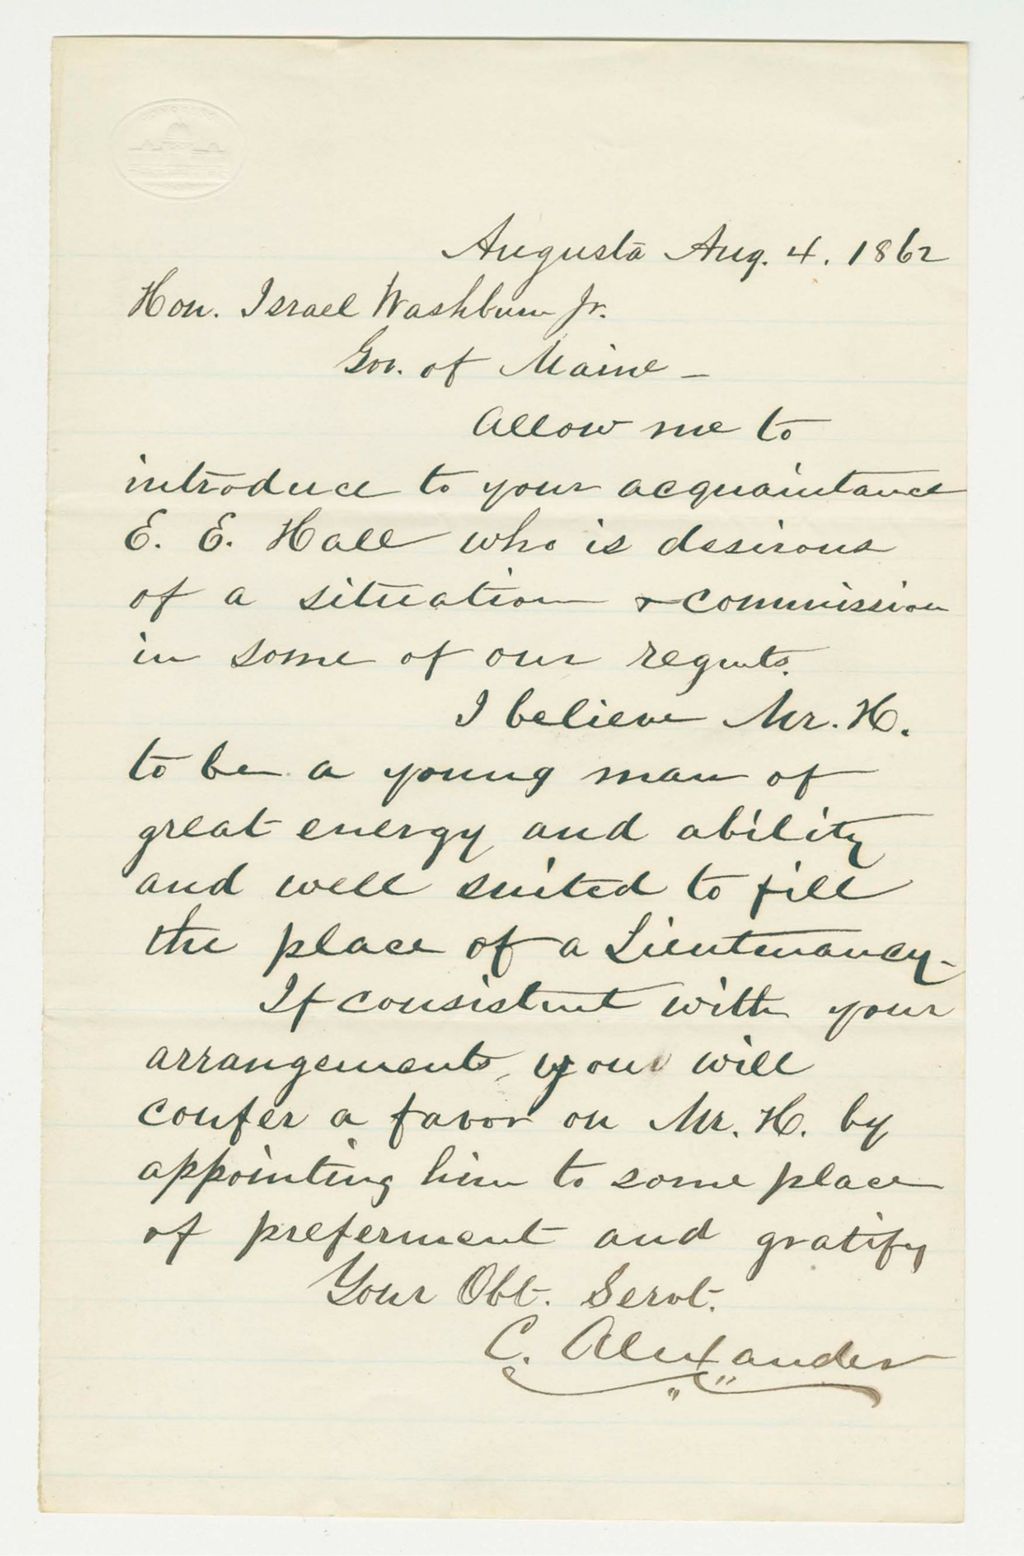 Augusta Aug. 4. 1862
Hon. Israel Washburn Jr.
Gov. of Maine -
Allow me to
introduce to your acquaintance
E. E. Hall who is desirous
of a situation & commission
in some of our regmts.
I believe Mr. H.
to be a young man of
great energy and ability
and well suited to fill
the place of a Lieutenancy -
If consistent with your
arrangements, you will
confer a favor on Mr. H. by
appointing him to some place
of preferment and gratify
Your Obt. Servt.
C. Alexander